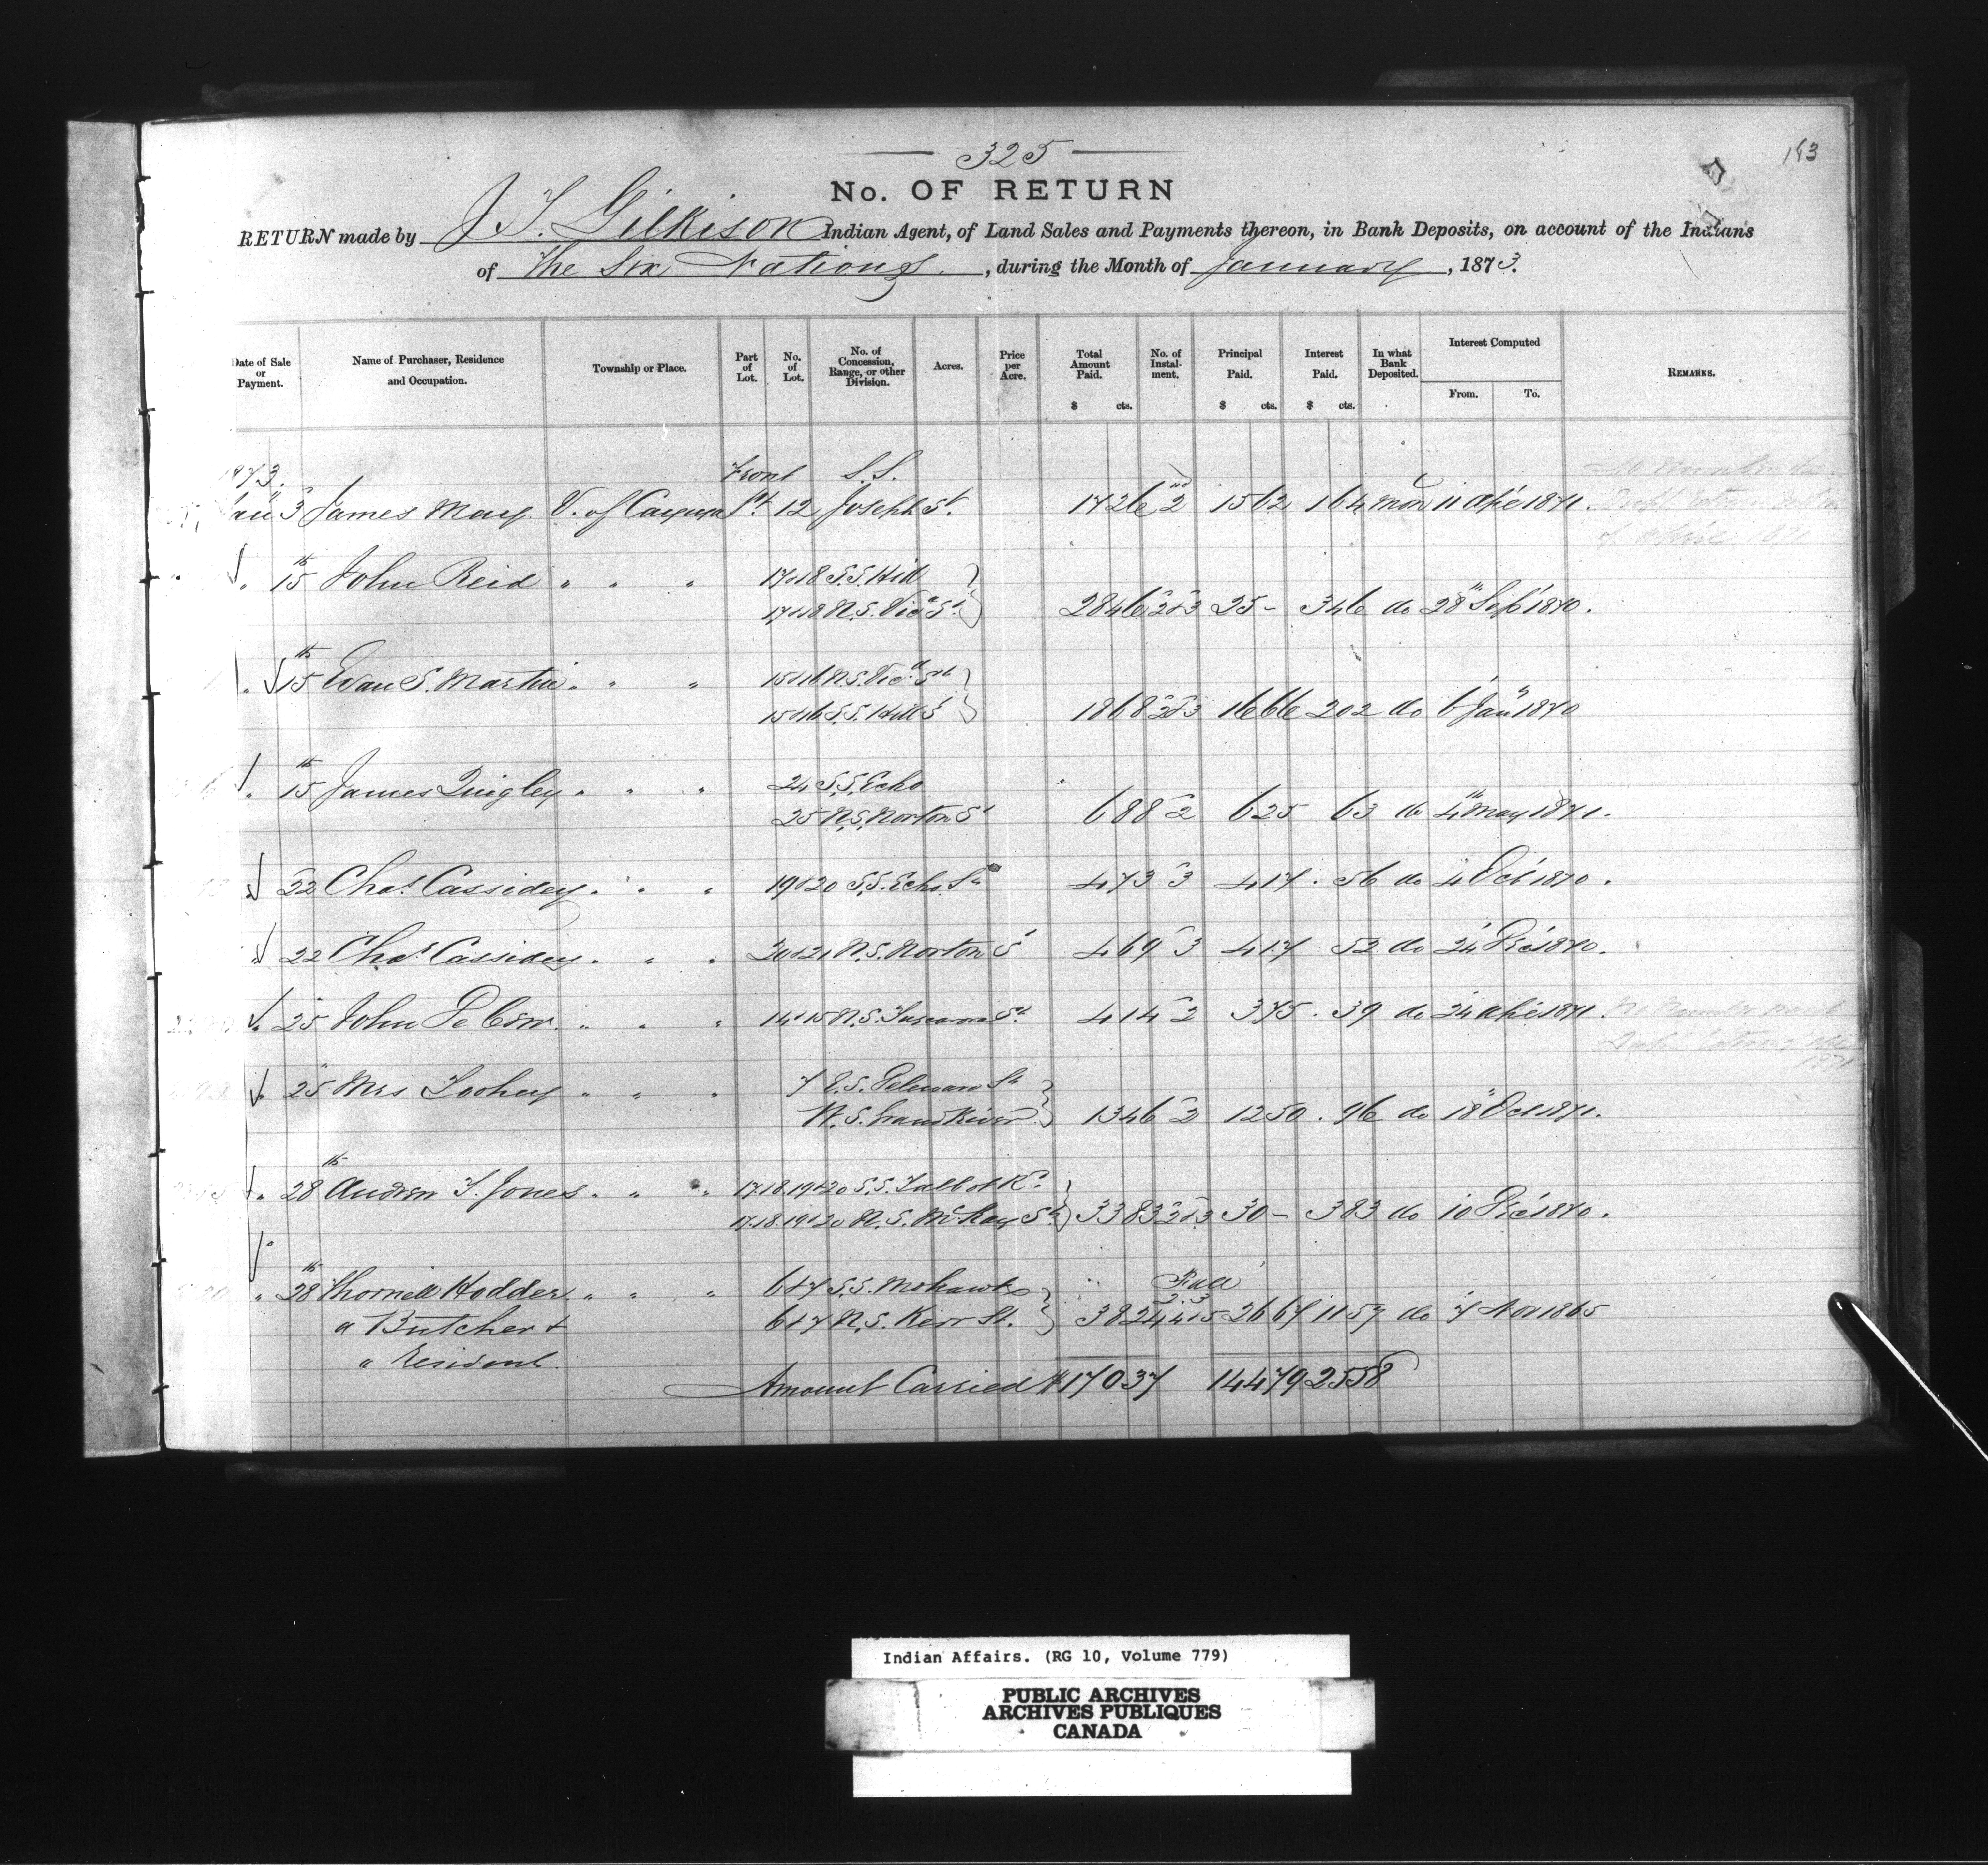 325
193
No. OF RETURN
RETURN made by J T. Gilkison Indian Agent, of Land Sales and Payments thereon, in Bank Deposits, on account of the Indians
of The Six Nations, during the Month of January, 1873.
Date of Sale or Payment. Name of Purchaser, Residence and Occupation. Township or Place. Part of Lot. No. of Lot. No. of Concession, Range, or other Division. Acres. Price per Acre. Total Amount Paid. $ cts. No. of Instal-ment. Principal Paid. $ cts. Interest Paid. $ cts. In what Bank Deposited. Interest Computed From. To. REMARKS.
1873. Front S.S.
Jan 3 James May V. of Cayuga Pt. 12 Joseph St. 17 26 2nd 15 62 1 64 Mon 11 Apl 1871.
" 15th John Reid " " " 17&18 S.S. Hill
17&18 N.S. Vica St 28 46 2&3 25 - 3 46 do 28th Sept 1870.
" 15th Evan S. Martin " " " 15&16 N.S. Vica St
15&16 S.S. Hill S 18 68 2&3 16 66 2 02 do 6 Jany 1870
" 15th James Quigley " " " 24 S.S. Echo
25 N.S. Norton St 6 88 2 6 25 63 do 4th May 1871.
" 22 Chas Cassidey " " " 19&20 S.S. Echo St 4 73 3 4 17 . 56 do 4 Oct 1870.
" 22 Chas Cassidey " " " 20&21 N.S. Norton S 4 69 3 4 17 . 52 do 24 Dec 1870.
" 25 John DeCew " " " 14&15 N.S. Tuscarora St. 4 14 2 3 75 . 39 do 24 Apl 1871.
" 25 Mrs Toohey " " " 7 E.S. Delaware St
W.S. Grand River 13 46 2 12 50 . 96 do 18 Oct 1871.
" 28th Andrew T. Jones " " " 17.18.19&20 S.S. Talbot Rd
17.18.19&20 N.S. McKay St 33 83 2&3 30 - 3 83 do 10 Dec 1870.
" 28th Thornell Hodder " " " 6&7 S.S. Mohawk " Full
a Butcher & 6&7 N.S. Kerr St. 38 24 2.3 4&5 26 67 11 57 do 7 Nov 1865
" Resident
Amount Carried $170 37 144 79 25 58
Indian Affairs. (RG 10, Volume 779)
PUBLIC ARCHIVES
ARCHIVES PUBLIQUES
CANADA